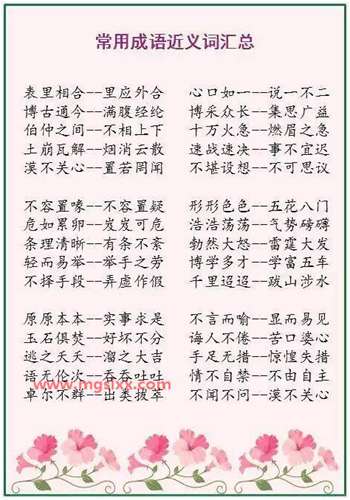 常用成语近义词汇总
表里相合--里应外合 心口如一--说一不二
博古通今--满腹经纶 博采众长--集思广益
伯仲之间--不相上下 十万火急--燃眉之急
土崩瓦解--烟消云散 速战速决--事不宜迟
漠不关心--置若罔闻 不堪设想--不可思议
不容置喙--不容置疑 形形色色--五花八门
危如累卵--岌岌可危 浩浩荡荡--气势磅礴
条理清晰--有条不紊 勃然大怒--雷霆大发
轻而易举--举手之劳 博学多才--学富五车
不择手段--弄虚作假 千里迢迢--跋山涉水
原原本本--实事求是 不言而喻--显而易见
玉石俱焚--好坏不分 诲人不倦--苦口婆心
逃之夭夭--溜之大吉 手足无措--惊惶失措
语无伦次--吞吞吐吐 情不自禁--不由自主
www.mgslxx.com
卓尔不群--出类拔萃 不闻不问--漠不关心